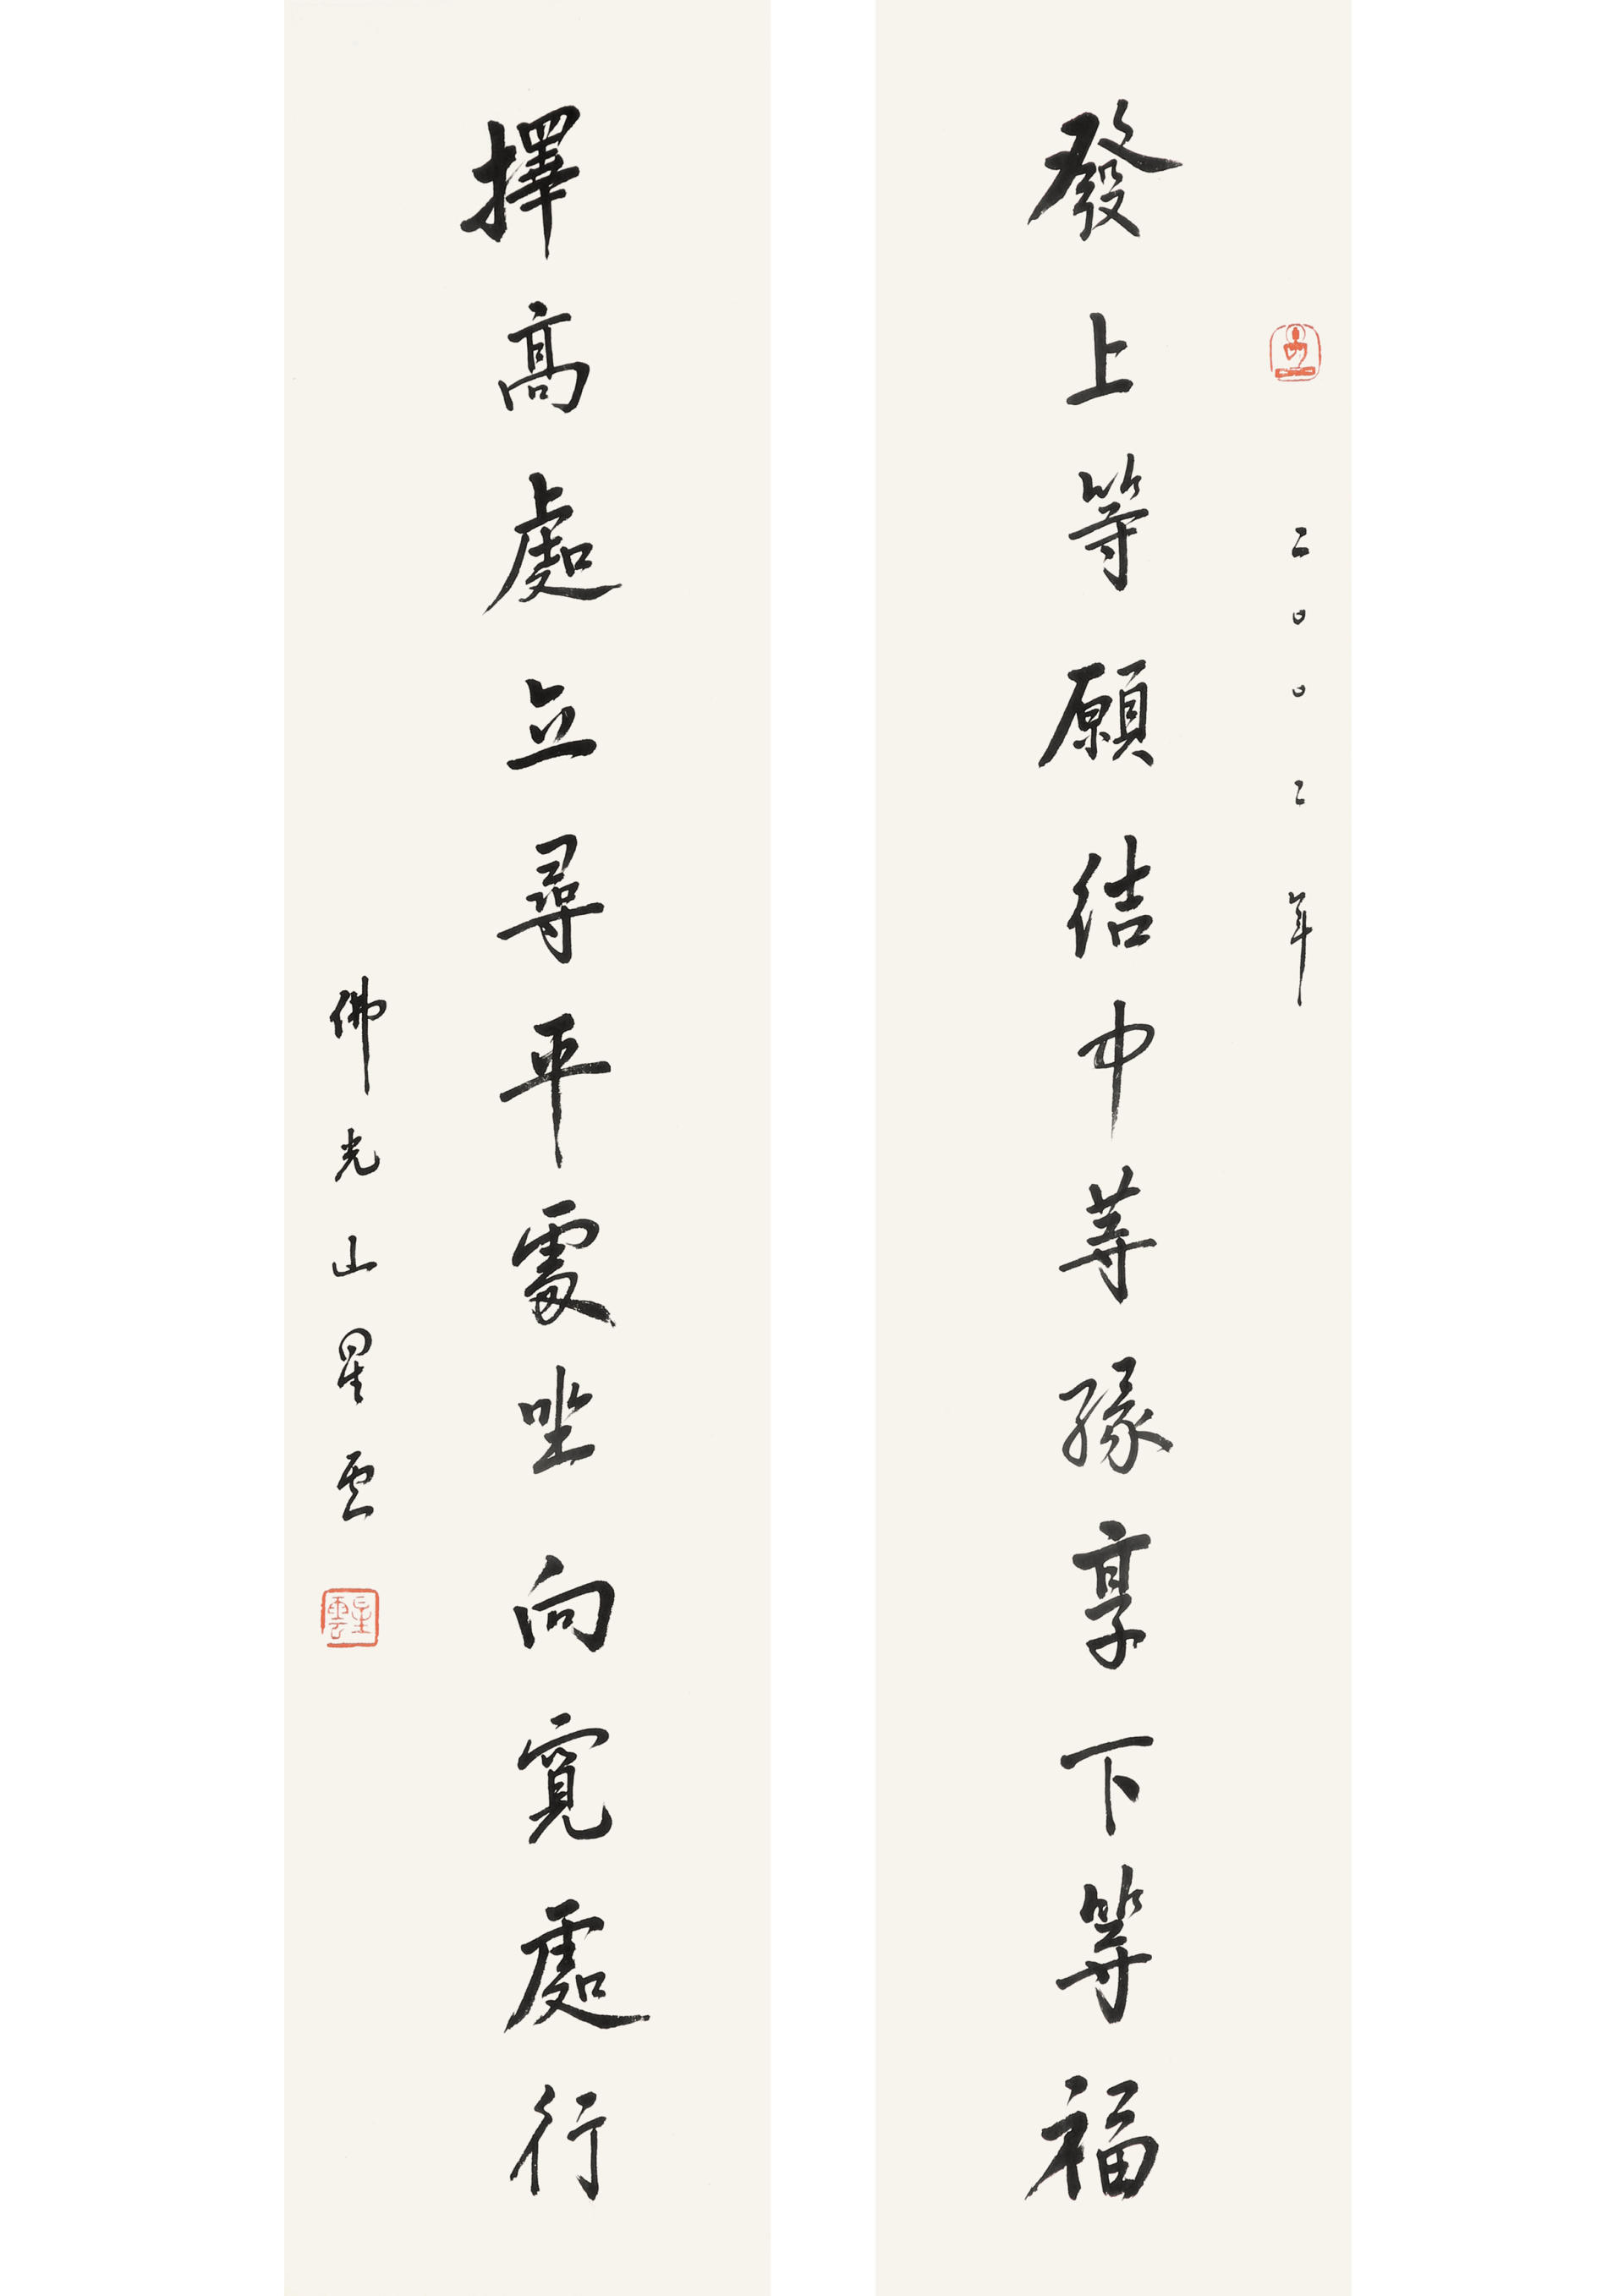 二〇〇二年
發上等願結中等緣享下等福
擇高處立尋平處坐向寬處行
佛光山星雲
星雲